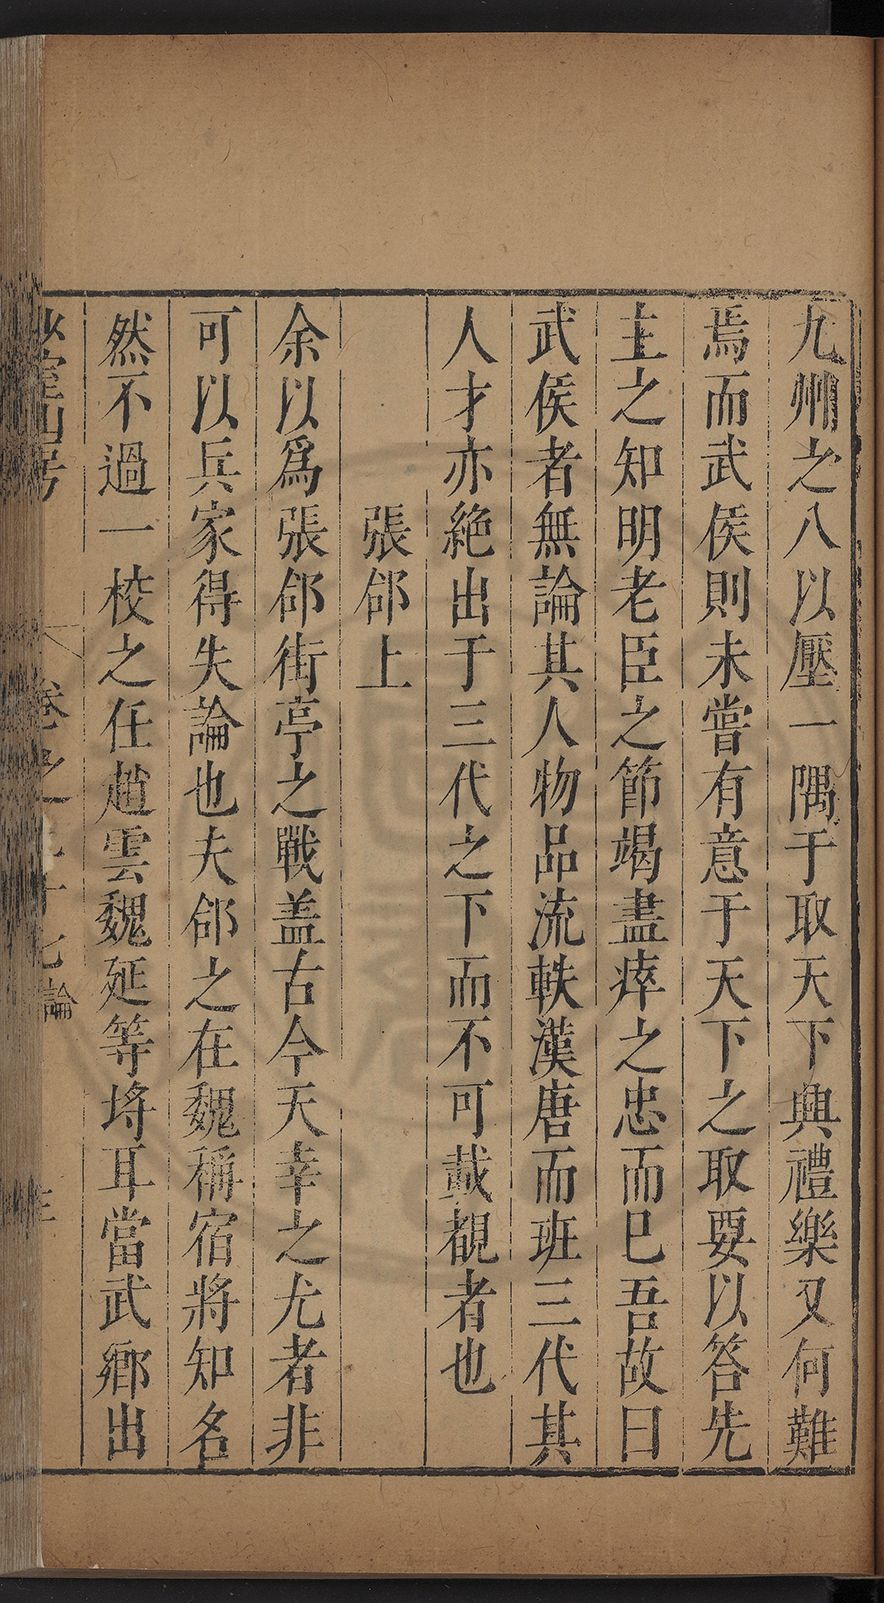 九州之八以壓一隅于取天下興禮樂又何難
焉而武侯則未嘗有意于天下之取要以答先
主之知明老臣之節竭盡瘁之忠而已吾故曰
武侯者無論其人物品流軼漢唐而班三代其
人才亦絕出于三代之下而不可蔑覩者也
張郃上
余以爲張郃街亭之戰盖古今天幸之尤者非
可以兵家得失論也夫郃之在魏稱宿將知名
然不過一校之任趙雲魏延等埓耳當武鄉出
室山房
卷之九十七論